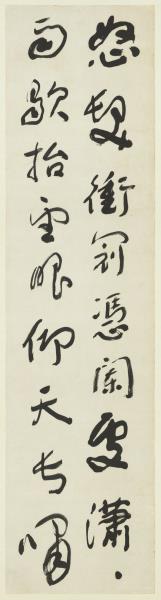 怒髮衝冠憑闌處瀟、
雨歇抬望眼仰天長嘯